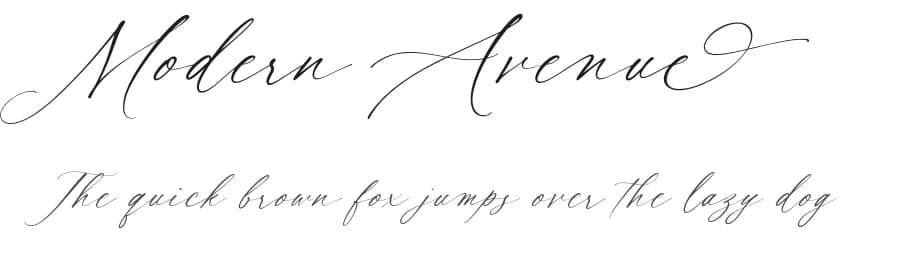 Modern Avenue
The quick brown fox jumps over the lazy dog